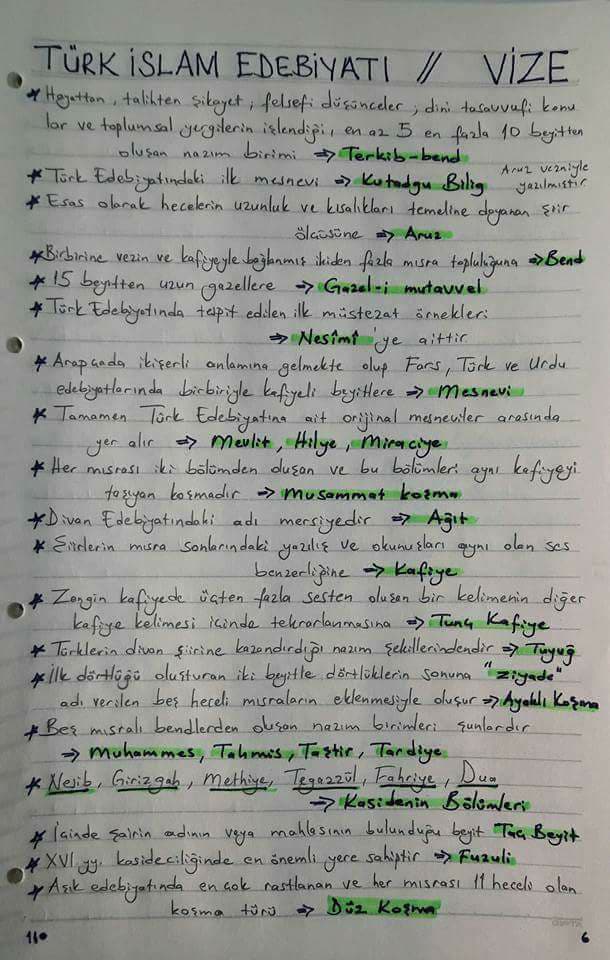 TÜRK İSLAM EDEBİYATI // VİZE
* Hayattan, talihten şikayet, felsefi düşünceler, dini tasavvufi konu
lar ve toplumsal yergilerin işlendiği, en az 5 en fazla 10 beyitten
oluşan nazım birimi ⇒ Terkib-bend
* Türk Edebiyatındaki ilk mesnevi ⇒ Kutadgu Bilig Aruz vezniyle
yazılmıştır
* Esas olarak hecelerin uzunluk ve kısalıkları temeline dayanan şiir
ölçüsüne ⇒ Aruz
* Birbirine vezin ve kafiyeyle bağlanmış ikiden fazla mısra topluluğuna ⇒ Bend
* 15 beyitten uzun gazellere ⇒ Gazel-i mutavvel
* Türk Edebiyatında tespit edilen ilk müstezat örnekleri
⇒ Nesîmî'ye aittir
* Arapçada ikişerli anlamına gelmekte olup Fars, Türk ve Urdu
edebiyatlarında birbiriyle kafiyeli beyitlere ⇒ Mesnevi
* Tamamen Türk Edebiyatına ait orijinal mesneviler arasında
yer alır ⇒ Mevlit, Hilye, Miraciye
* Her mısrası iki bölümden oluşan ve bu bölümleri aynı kafiyeyi
taşıyan koşmadır ⇒ Musammat koşma
* Divan Edebiyatındaki adı mersiyedir ⇒ Ağıt
* Şiirlerin mısra sonlarındaki yazılış ve okunuşları aynı olan ses
benzerliğine ⇒ Kafiye
* Zengin kafiyede üçten fazla sesten oluşan bir kelimenin diğer
kafiye kelimesi içinde tekrarlanmasına ⇒ Tunç Kafiye
* Türklerin divan şiirine kazandırdığı nazım şekillerindendir ⇒ Tuyuğ
* İlk dörtlüğü oluşturan iki beyitle dörtlüklerin sonuna "ziyade"
adı verilen beş heceli mısraların eklenmesiyle oluşur ⇒ Ayaklı Koşma
* Beş mısralı bendlerden oluşan nazım birimleri şunlardır
⇒ Muhammes, Tahmis, Taştir, Tardiye
* Nesib, Girizgah, Methiye, Tegazzül, Fahriye, Dua
⇒ Kasidenin Bölümleri
* İçinde şairin adının veya mahlasının bulunduğu beyit Taç Beyit
* XVI. yy. kasideciliğinde en önemli yere sahiptir ⇒ Fuzuli
* Aşık edebiyatında en çok rastlanan ve her mısrası 11 heceli olan
koşma türü ⇒ Düz Koşma
6